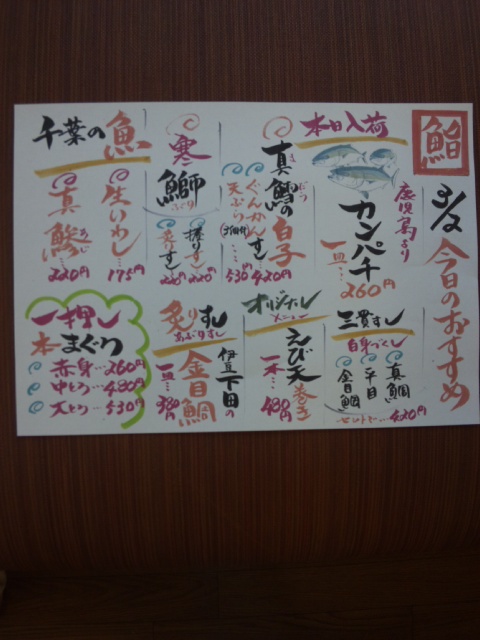 鮨
3/2 今日のおすすめ
本日入荷
鹿児島より
カンパチ
一皿…260円
真鱈の白子
まだら
ぐんかんすし 420円
天ぷら 530円
寒鰤
ぶり
握りすし 220円
炙りすし 220円
千葉の魚
生いわし… 175円
真鯵… 220円
あじ
三貫すし
白身づくし
真鯛
平目
金目鯛
セットで…420円
オリジナル
メニュー
えび天巻き
一本… 480円
炙りすし
あぶりすし
伊豆下田の
金目鯛
一皿…380円
一押し
本まぐろ
赤身…260円
中とろ…480円
大とろ…530円